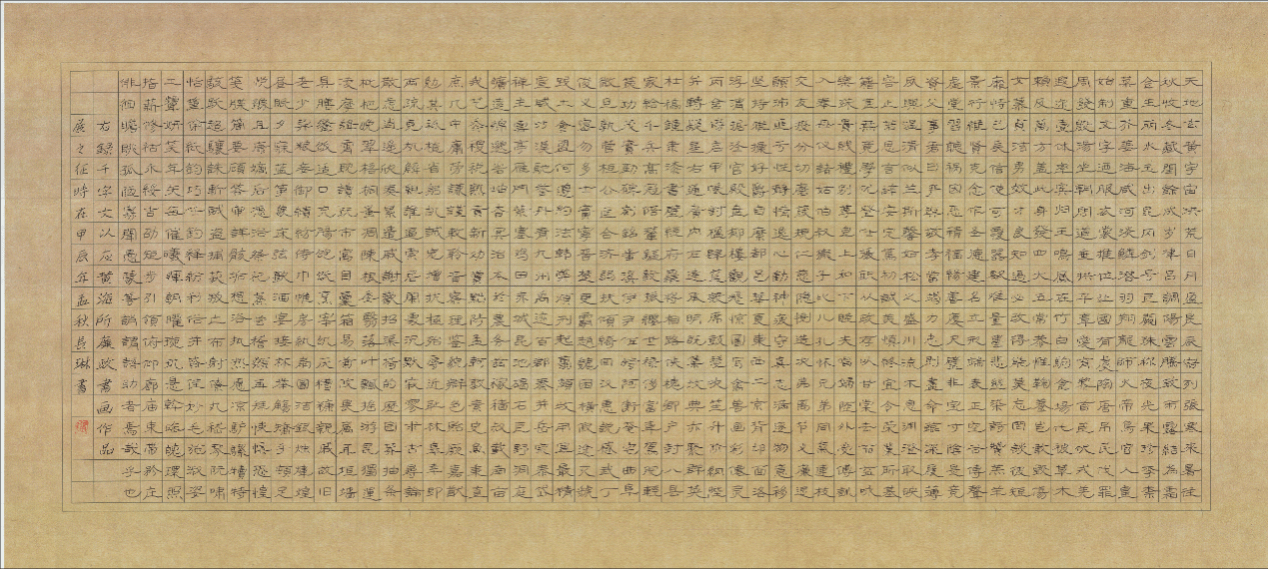 天地玄黃宇宙洪荒日月盈昃辰宿列張寒來暑往
秋收冬藏閏餘成歲律呂調陽雲騰致雨露結為霜
金生麗水玉出崑岡劍號巨闕珠稱夜光菓珍李柰
菜重芥薑海鹹河淡鱗潛羽翔龍師火帝鳥官人皇
始制文字乃服衣裳推位讓國有虞陶唐弔民伐罪
周發殷湯坐朝問道垂拱平章愛育黎首臣伏戎羌
遐邇壹體率賓歸王鳴鳳在竹白駒食場化被草木
賴及萬方蓋此身髮四大五常恭惟鞠養豈敢毀傷
女慕貞潔男效才良知過必改得能莫忘罔談彼短
靡恃己長信使可覆器欲難量墨悲絲染詩讚羔羊
景行維賢克念作聖德建名立形端表正空谷傳聲
虛堂習聽禍因惡積福緣善慶尺璧非寶寸陰是競
資父事君曰嚴與敬孝當竭力忠則盡命臨深履薄
夙興溫凊似蘭斯馨如松之盛川流不息淵澄取映
容止若思言辭安定篤初誠美慎終宜令榮業所基
籍甚無竟學優登仕攝職從政存以甘棠去而益詠
樂殊貴賤禮別尊卑上和下睦夫唱婦隨外受傅訓
入奉母儀諸姑伯叔猶子比兒孔懷兄弟同氣連枝
交友投分切磨箴規仁慈隱惻造次弗離節義廉退
顛沛匪虧性靜情逸心動神疲守真志滿逐物意移
堅持雅操好爵自縻都邑華夏東西二京背邙面洛
浮渭據涇宮殿盤鬱樓觀飛驚圖寫禽獸畫彩仙靈
丙舍傍啟甲帳對楹肆筵設席鼓瑟吹笙升階納陛
弁轉疑星右通廣內左達承明既集墳典亦聚群英
杜稿鍾隸漆書壁經府羅將相路俠槐卿戶封八縣
家給千兵高冠陪輦驅轂振纓世祿侈富車駕肥輕
策功茂實勒碑刻銘磻溪伊尹佐時阿衡奄宅曲阜
微旦孰營桓公匡合濟弱扶傾綺迴漢惠說感武丁
俊乂密勿多士寔寧晉楚更霸趙魏困橫假途滅虢
踐土會盟何遵約法韓弊煩刑起翦頗牧用軍最精
宣威沙漠馳譽丹青九州禹跡百郡秦并嶽宗恆岱
禪主云亭雁門紫塞雞田赤城昆池碣石鉅野洞庭
曠遠綿邈巖岫杳冥治本於農務茲稼穡俶載南畝
我藝黍稷稅熟貢新勸賞黜陟孟軻敦素史魚秉直
庶幾中庸勞謙謹敕聆音察理鑑貌辨色貽厥嘉猷
勉其祗植省躬譏誡寵增抗極殆辱近恥林皋幸即
兩疏見機解組誰逼索居閒處沉默寂寥求古尋論
散慮逍遙欣奏累遣慼謝歡招渠荷的歷園莽抽條
枇杷晚翠梧桐早凋陳根委翳落葉飄颻遊鵾獨運
凌摩絳霄耽讀翫市寓目囊箱易輶攸畏屬耳垣牆
具膳餐飯適口充腸飽飫烹宰飢厭糟糠親戚故舊
老少異糧妾御績紡侍巾帷房紈扇圓潔銀燭煒煌
晝眠夕寐藍筍象床弦歌酒讌接杯舉觴矯手頓足
悅豫且康嫡後嗣續祭祀蒸嘗稽顙再拜悚懼恐惶
箋牒簡要顧答審詳骸垢想浴執熱願涼驢騾犢特
駭躍超驤誅斬賊盜捕獲叛亡布射遼丸嵇琴阮嘯
恬筆倫紙鈞巧任釣釋紛利俗並皆佳妙毛施淑姿
工顰妍笑年矢每催曦暉朗曜璇璣懸斡晦魄環照
指薪修祜永綏吉劭矩步引領俯仰廊廟束帶矜莊
徘徊瞻眺孤陋寡聞愚蒙等誚謂語助者焉哉乎也
右錄千字文以应黄淮所廉政書画作品
展之征時在甲辰年孟秋琳書